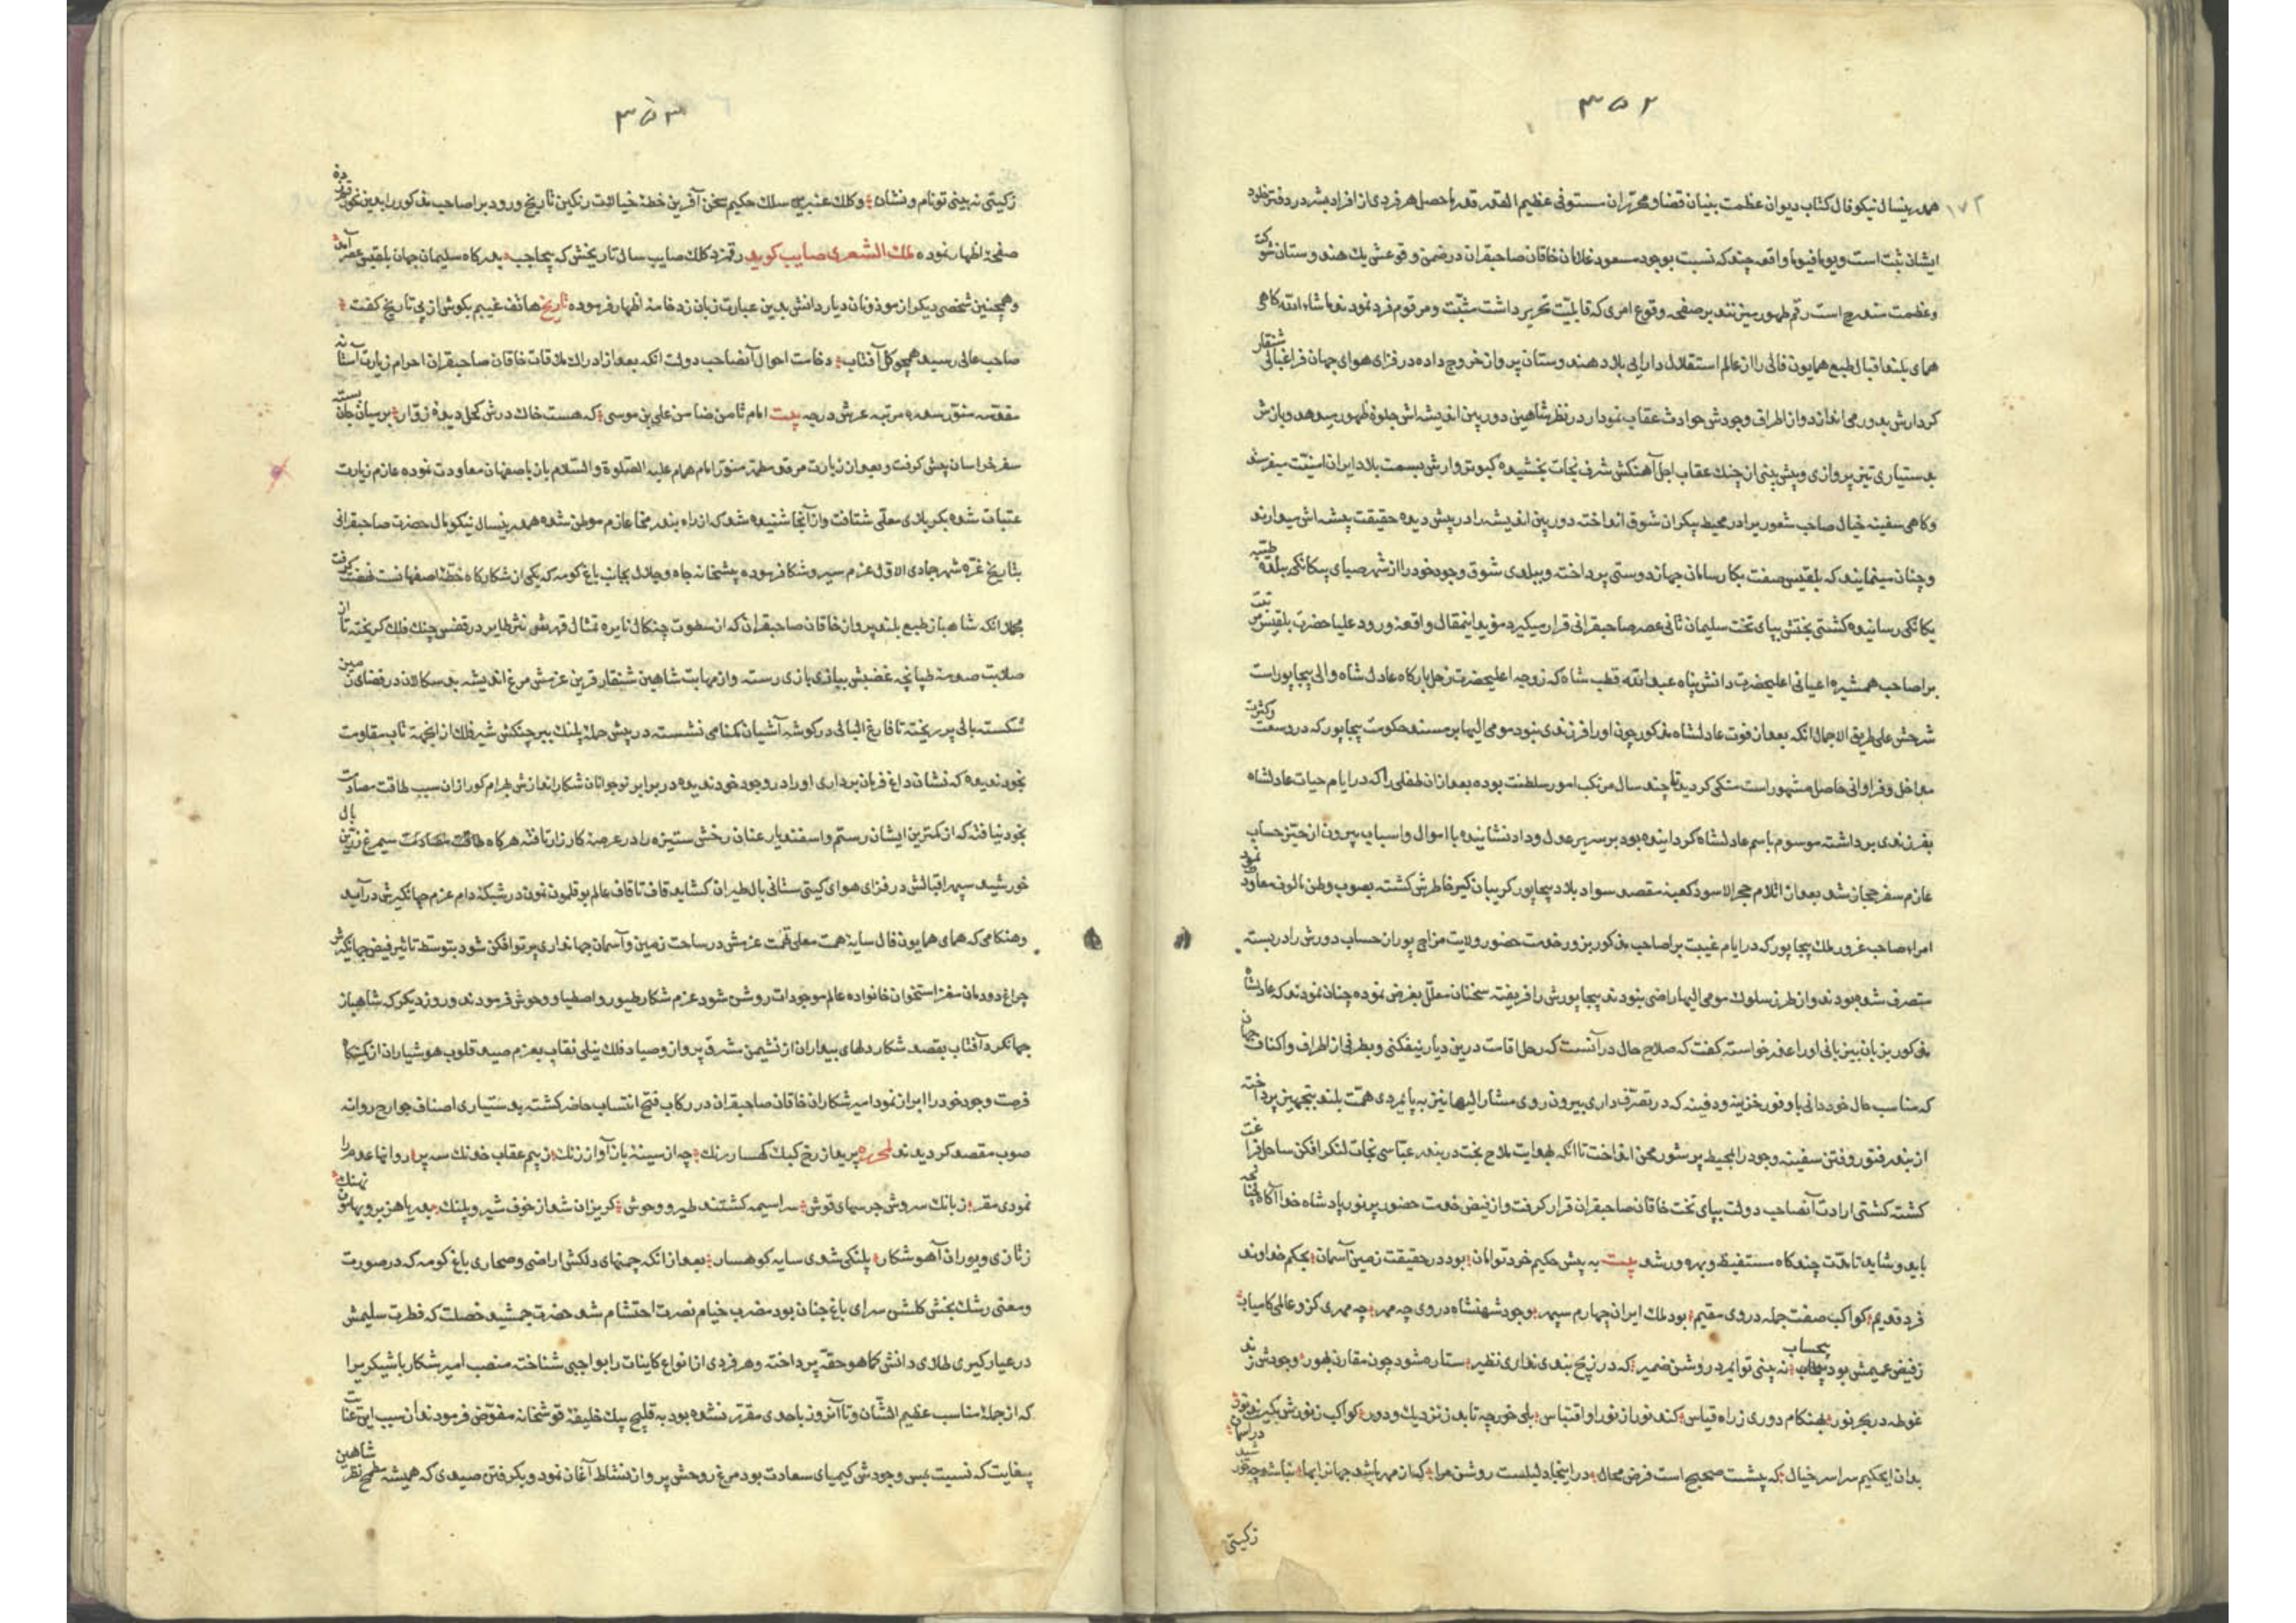 ۳۵۲
۱۷۲
همدرینسال نیکو فال کتاب دیوان عظمت بنیان قضا و محرران مستوفی عظیم القدر قدر ماحصل هر فردی از افراد بشر در دفتر ظهور
ایشان ثبت است و یوما فیوما واقعه چند که نسبت بوجود مسعود غلامان خاقان صاحبقران در ضمن وقوعش یک هندوستان شوکت
و عظمت مندرج است رقم ظهور میزنند بر صفحه وقوع امری که قابلیت تحریر داشت مثبت و مرقوم فرد نمودند ما شاء الله کاهی
همای بلند اقبال طبع همایون فالی را از عالم استقلال دارایی بلاد هندوستان پرواز خروج داده در فزای هوای جهان فراغبالی شنقار
کردارش بدور می اندازد و از اطراف وجودش حوادث عقاب نمودار در نظر شاهین دوربین اندیشه اش جلوه ظهور میدهد و بازش
بدستیاری تیز پروازی و پیش بینی از چنک عقاب اجل آهنکش شرف نجات بخشیده کبوتروارش بسمت بلاد ایران امنیت میفرستد
و کاهی سفینه خیال صاحب شعور یرا در محیط بیکران شوق انداخته دوربین اندیشه را در پیش دیده حقیقت پیشه اش میدارند
و چنان مینمایند که بلقیس صفت بکار سامان جهاندوستی پرداخته و ببلدی شوق وجود خود را از شهر صبای بیکانکی ببلده طیبه
یکانکی رسانیده کشتی بختش بپای تخت سلیمان ثانی عصر صاحبقرانی قرار میکیرد مؤید اینمقال واقعه ورود علیا حضرت بلقیس مرتبت
براصاحب همشیره اعیانی اعلیحضرت دانش پناه عبدالله قطب شاه که زوجه اعلیحضرت زحل بارکاه عادل شاه والی بیجاپور است
شرحش علی طریق الاجمال انکه بعد از فوت عادلشاه مذکور چون او را فرزندی نبود مومی الیها بر مسند حکومت بیجاپور که در وسعت و کثرت
مداخل و فراوانی حاصل مشهور است متکی کردید تا چند سال مرتکب امور سلطنت بوده بعد ازان طفلی را که در ایام حیات عادلشاه
بفرزندی برداشته موسوم باسم عادلشاه کردانیده بود بر سریر عدل و داد نشانیده با اموال و اسباب بیرون از حیز حساب
عازم سفر حجاز شد بعد از اثلام حجر الاسود کعبه مقصد سواد بلاد بیجاپور کریبان کیر خاطرش کشته بصوب وطن مالوف معاودت نمود
امراء صاحب غرور ملک بیجاپور که در ایام غیبت براصاحب مذکور بزور خدمت حضور ولایت مزاج پوران حساب دورش را در بسته
متصرف شده بودند و از طرز سلوک مومی الیها راضی نبودند بیجاپورش را فریفته سخنان معلل بغرض نموده چنان نمودند که عادلشاه
مذکور بزبان بیزبانی او را عذر خواسته کفت که صلاح حال در آنست که رحل اقامت درین دیار نیفکنی و بطرفی از اطراف و اکناف جهان
که مناسب حال خود دانی با وفور خزینه و دفینه که در تصرف داری بیرون روی مشار الیها نیز به پایمردی همت بلند بتجهیز پرداخته
از بندر فتور وفتن سفینه وجود را بمحیط پر شور محن انداخت تا انکه بهدایت ملاح بخت در بندر عباسی نجات لنکر افکن ساحل فراغت
کشته کشتی ارادت آنصاحب دولت بپای تخت خاقان صاحبقران قرار کرفت و از فیض خدمت حضور پر نور پادشاه خدا آکاه چنانچه
باید و شاید تا مدت چند کاه مستفیظ و بهره ور شد بیت به پیش حکیم خرد توامان بود در حقیقت زمین آسمان بحکم خداوند
فرد قدیم کواکب صفت جمله در وی مقیم بود ملک ایران چهارم سپهر وجود شهنشاه در وی چه مهر چه مهری کزو عالمی کامیاب
ز فیض عمیمش بود بیحساب نه بینی تو ایمرد روشن ضمیر که در زیج بندی نداری نظیر ستاره شود چون مقارن بهور وجودش زند
غوطه در بحر نور بهنکام دوری ز راه قیاس کند نور از نور او اقتباس بلی خور چه تابد ز نزدیک و دور کواکب ز نورش بکیرند نور
بدان ایحکیم سراسر خیال که پشت صحیح است فرض محال در اینجا دلیلست روشن مرا کزان مهر باشد جهانرا بها نباشد چو خورشید در آسمان
زکیتی
۳۵۳
زکیتی نه بینی تو نام و نشان و کلک عنبرین سلک حکیم سخن آفرین خطه خیالات رنکین تاریخ ورود براصاحب مذکور را بدین نحو زده
صفحه اظهار نموده ملک الشعری صایب کوید رقم زد کلک صایب سال تاریخش که بیحاجب بدرکاه سلیمان جهان بلقیس عصر آمد
و همچنین شخصی دیکر از موذونان دیار دانش بدین عبارت زبان زد خامه اظهار فرسوده تاریخ هاتف غیبم بکوش از پی تاریخ کفت
صاحب عالی رسید همچو کل آفتاب دخامت احوال آنصاحب دولت انکه بعد از ادراک ملاقات خاقان صاحبقران احرام زیارت آستانه
مقدسه منوره سدره مرتبه عرش درجه بیت امام ثامن ضامن علی بن موسی که هست خاک درش کحل دیده زوار بر میان جان بسته
سفر خراسان پیش کرفت و بعد از زیارت مرقد مطهر منور امام همام علیه الصلوة والسلام باز باصفهان معاودت نموده عازم زیارت
عتبات شده بکربلای معلی شتافت و از آنجا شنیده شد که از راه بندر مخا عازم موطن شده همدرینسال نیکو مال حضرت صاحبقرانی
بتاریخ غره شهر جمادی الاول عزم سیر و شکار فرموده پیشخانه جاه و جلال بجانب باغ کومه که یکی از شکارکاه خطه اصفهانست نهضت کرفت
مجملا انکه شاهباز طبع بلند پرواز خاقان صاحبقران که از سطوت چنکال نایره تمثال قهرش نثر طایر در قفس چنک فلک کریخته تا از
صلابت صدمه طپانچه غضبش ببازی بازی رسته و از مهابت شاهین شنقار قرین عزمش مرغ اندیشه بدسکالان در فضای زمین
شکسته بالی پر ریخته تا فارغ البالی در کوشه آشیان کمنامی نشسته در پیش حمله پلنک ببر چنکش شیر فلک از اینجهه تاب مقاومت
بخود ندیده که نشان داغ فرمان برداری او را در وجود خود ندیده در برابر نوجوانان شکار اندازش بهرام کور ازان سبب طاقت مصادمت
بخود نیافته که از کمترین ایشان رستم و اسفندیار عنان رخش ستیزه را در عرصه کارزار تافته هرکاه طاقت مصادمت سیمرغ زرین بال
خورشید سپهر اقبالش در فزای هوای کیتی ستانی بال طیران کشاید قاف تا قاف عالم بوقلمون نمون در شبکه دام عزم جهانکیرش درآید
و هنکامی که همای همایون فال سایه همت معلی قیمت عزمش در ساحت زمین و آسمان جهانداری پرتو افکن شود بتوسط تاثیر فیض جهانکیرش
چراغ دودمان مغز استخوان خانواده عالم موجودات روشن شود عزم شکار طیور و اصطیاد وحوش فرمودند و روز دیکر که شاهباز
جهانکرد آفتاب بقصد شکار دلهای بیداران از نشیمن مشرق پرواز و صیاد فلک نیلی نقاب بعزم صید قلوب هوشیاران از کمینکاه
فرصت وجود خود را ابراز نمود امیر شکاران خاقان صاحبقران در رکاب فتح انتساب حاضر کشته بدستیاری اصناف جوارح روانه
صوب مقصد کردیدند لمحرره پرید از رخ کبک کهسار رنک چه از سینه باز آواز زنک ز بیم عقاب خدنک سه پر روانها عدم را
نمودی مقر ز بانک سروش جرسهای قوش سراسیمه کشتند طیر و وحوش کریزان شد از خوف شیر و پلنک بدریا هزبر و بهامون نهنک
ز تازی و یوران آهو شکار پلنکی شدی سایه کوهسار بعد از انکه چمنهای دلکش اراضی و صحاری باغ کومه که در صورت
و معنی رشک بخش کلشن سرای باغ جنان بود مضرب خیام نصرت احتشام شد حضرت جمشید خصلت که فطرت سلیمش
در عیار کیری طلای دانش کماهو حقه پرداخته و هر فردی از انواع کاینات را بواجبی شناخته منصب امیر شکار باشیکریرا
که از جمله مناسب عظیم الشان و تا آنروز باحدی مقرر نشده بود به قلیج بیک خلیفه قوشخانه مفوض فرمودند ازان سبب این عنایت
بیغایت که نسبت بمس وجودش کیمیای سعادت بود مرغ روحش پرواز نشاط آغاز نمود و بکرفتن صیدی که همیشه مطمح نظر شاهین